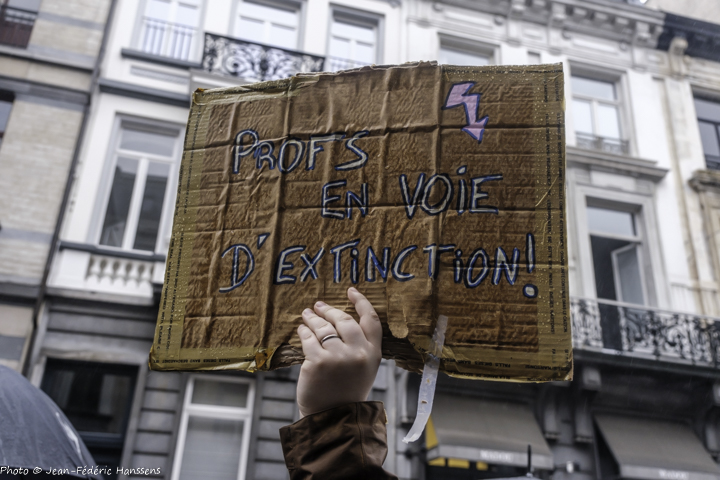 PROFS
EN VOIE
D'EXTINCTION!
Photo © Jean-Frédéric Hanssens